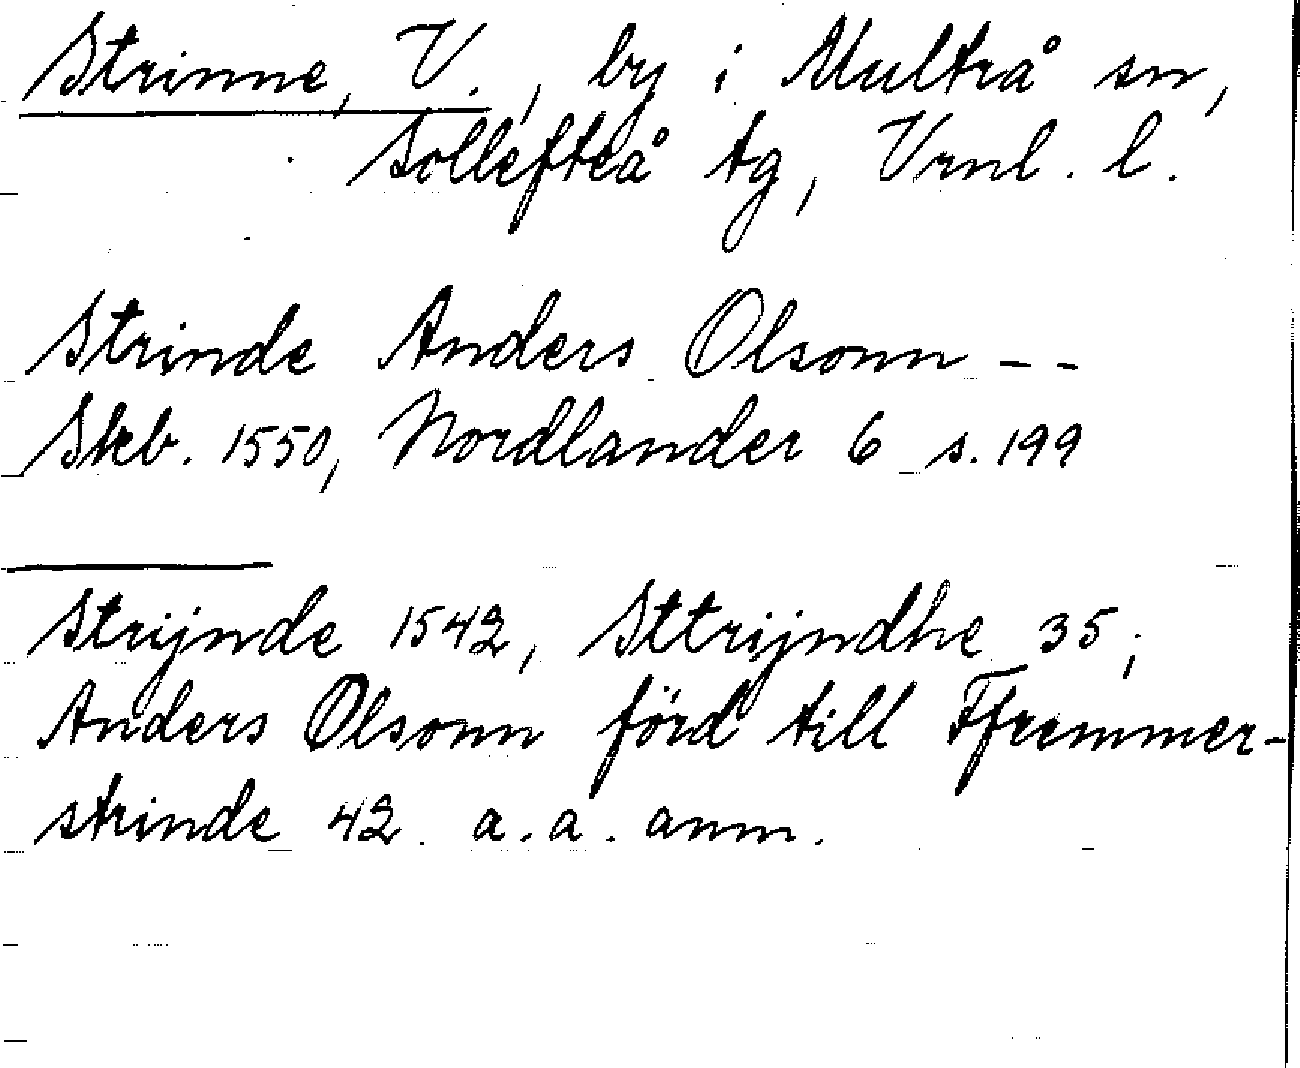 Strinne, V., by i Multrå sn,
Sollefteå tg, Vrnl. l.
Strinde Anders Olsonn - -
Skb. 1550, Nordlander 6 s. 199
Strijnde 1542, Sttrijndhe 35;
Anders Olsonn förd till Ffremmer-
strinde 42. a. a. anm.